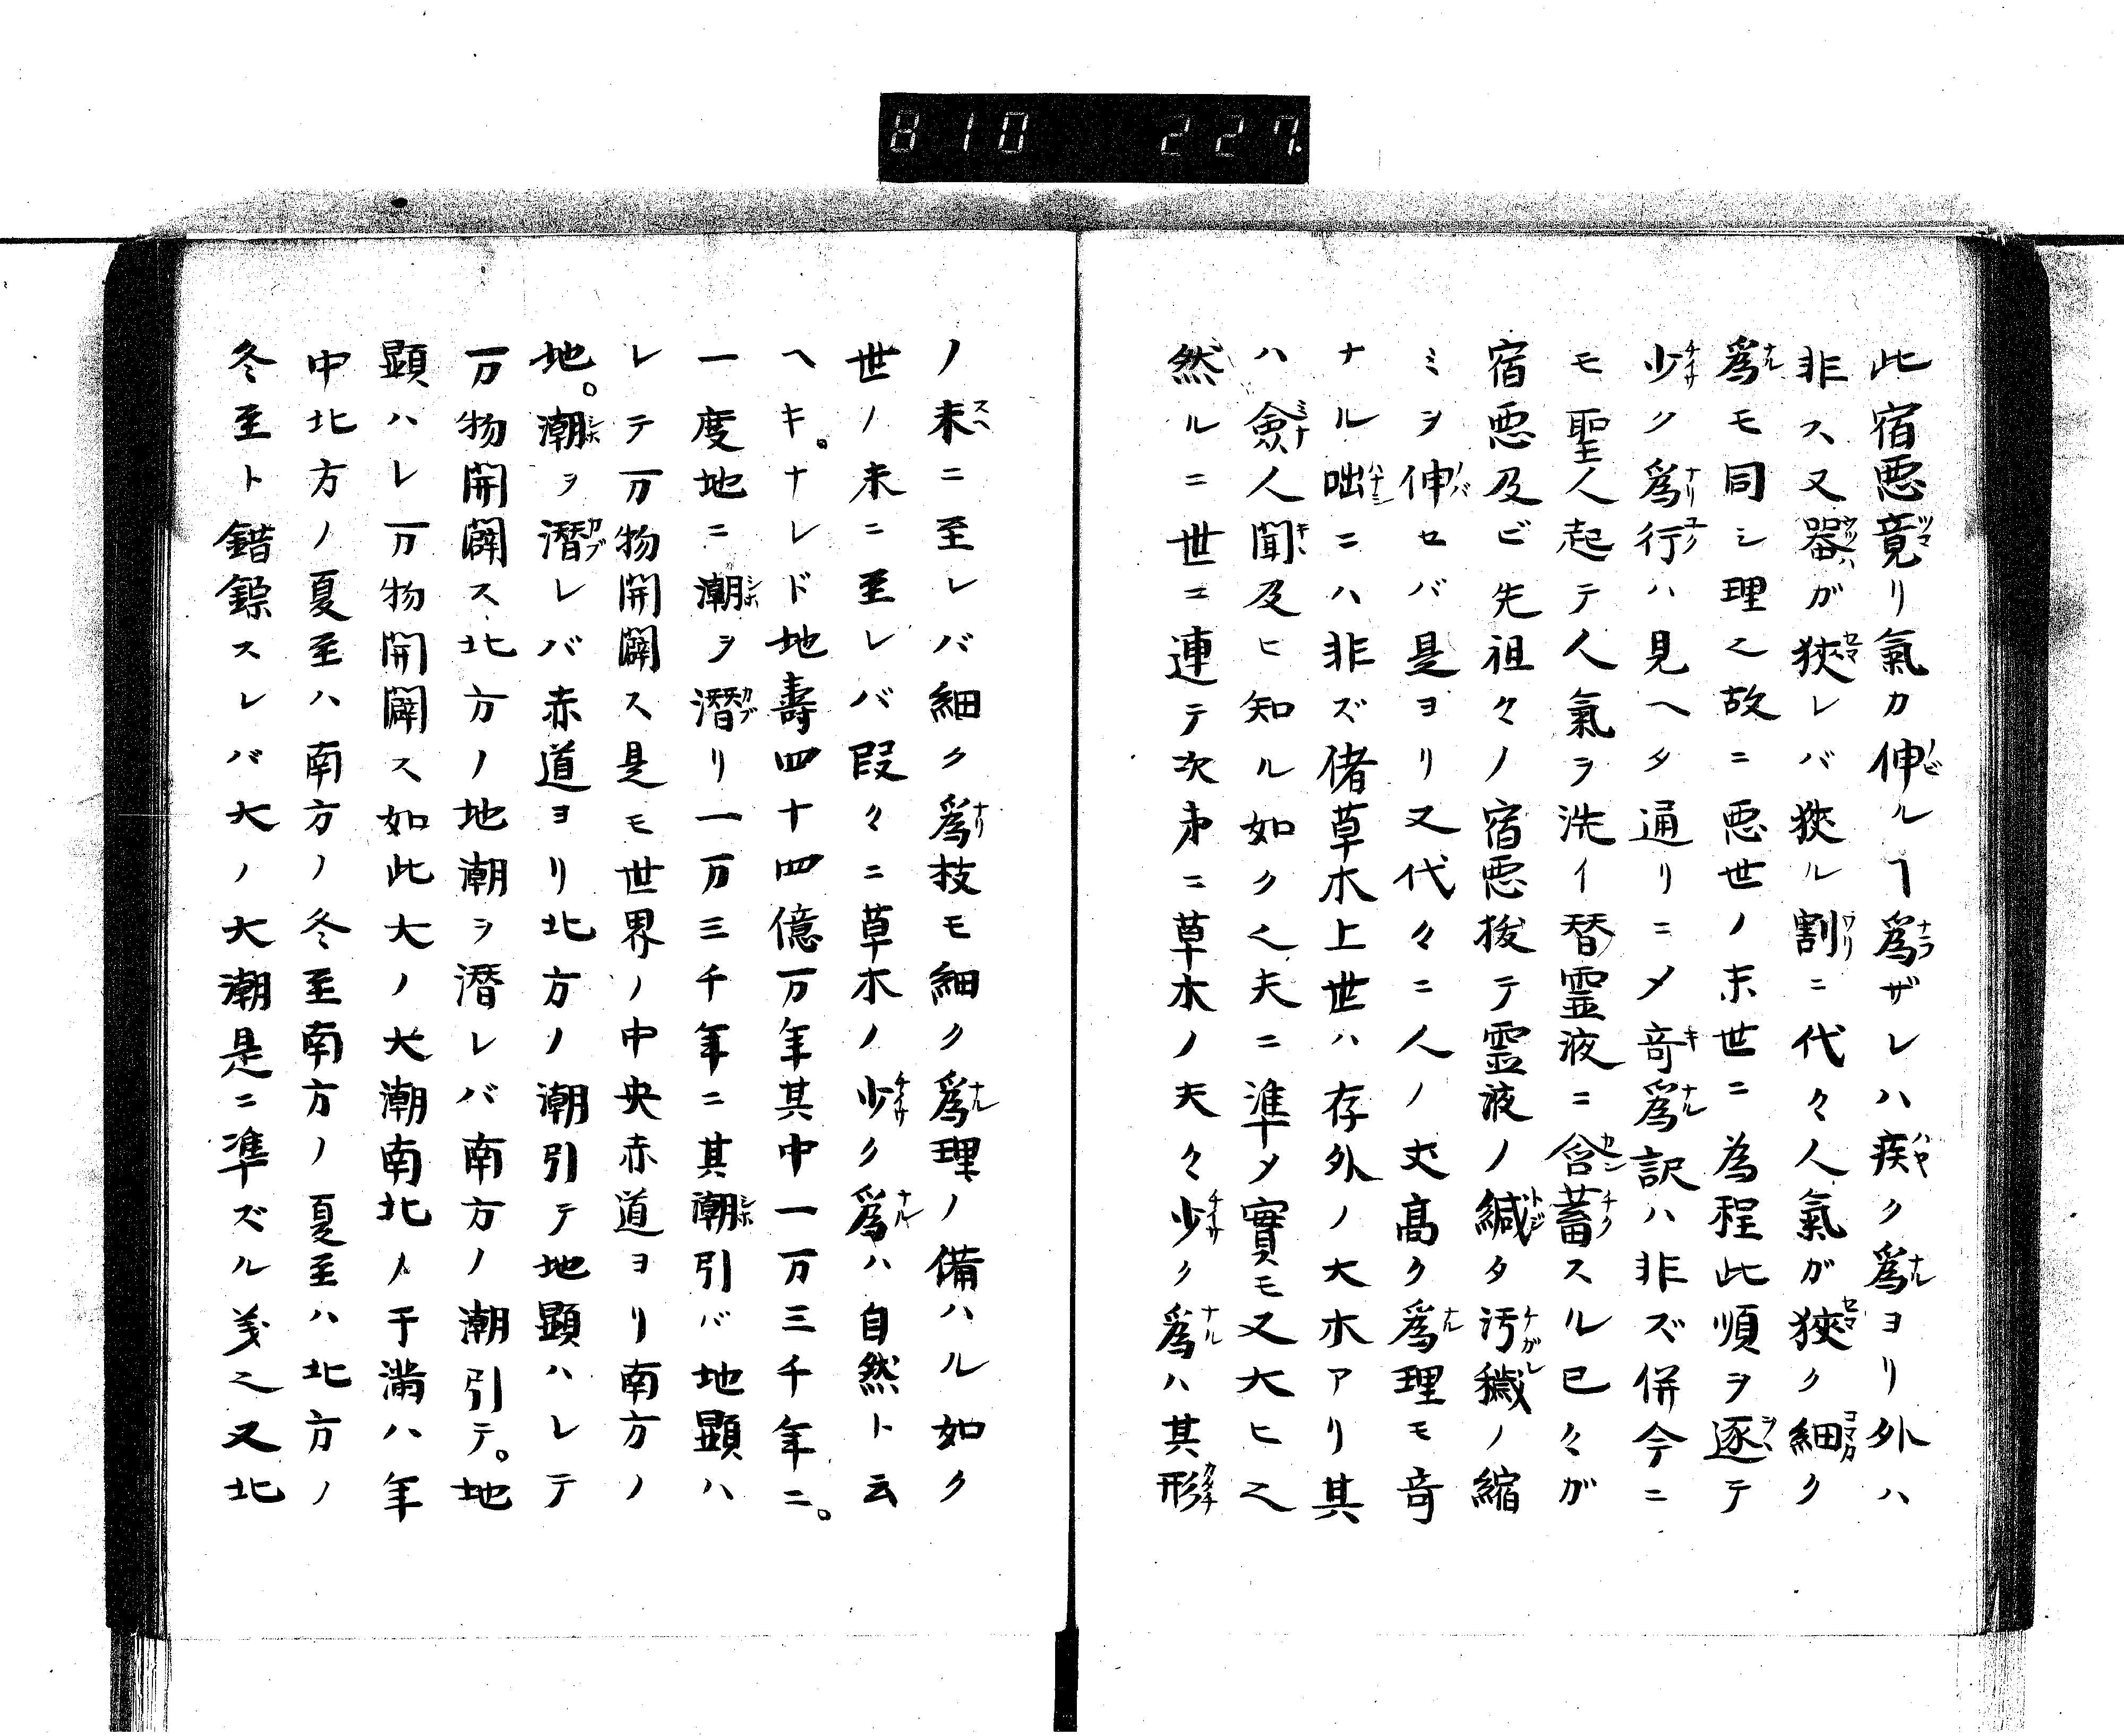 810 227.
此宿悪竟リ氣カ伸ルヿ爲ザレハ疾ク爲ヨリ外ハ
非ス又器ガ狹レバ狹ル割ニ代々人氣ガ狹ク細ク
爲モ同シ理之故ニ悪世ノ末世ニ為程此順ヲ逐テ
少ク爲行ハ見ヘタ通リニメ竒爲訳ハ非ズ併今ニ
モ聖人起テ人氣ヲ洗イ替靈液ニ含蓄スル已々ガ
宿悪及ビ先祖々ノ宿悪拔テ霊液ノ緘タ汚穢ノ縮
ミヲ伸セバ是ヨリ又代々ニ人ノ丈高ク爲理モ竒
ナル咄ニハ非ズ偖草木上世ハ存外ノ大木アリ其
ハ僉人聞及ヒ知ル如ク之夫ニ準メ實モ又大ヒ之
然ルニ世ニ連テ次第ニ草木ノ夫々少ク爲ハ其形
ノ末ニ至レバ細ク爲技モ細ク爲理ノ備ハル如ク
世ノ末ニ至レバ段々ニ草木ノ少ク爲ハ自然ト云
ヘキ。ナレド地壽四十四億万年其中一万三千年ニ。
一度地ニ潮ヲ潛リ一万三千年ニ其潮引バ地顯ハ
レテ万物開闢ス是モ世界ノ中央赤道ヨリ南方ノ
地。潮ヲ潛レバ赤道ヨリ北方ノ潮引テ地顯ハレテ
万物開闢ス北方ノ地潮ヲ潛レバ南方ノ潮引テ。地
顯ハレ万物開闢ス如此大ノ大潮南北ノ干満ハ年
中北方ノ夏至ハ南方ノ冬至南方ノ夏至ハ北方ノ
冬至ト錯綜スレバ大ノ大潮是ニ準ズル義之又北